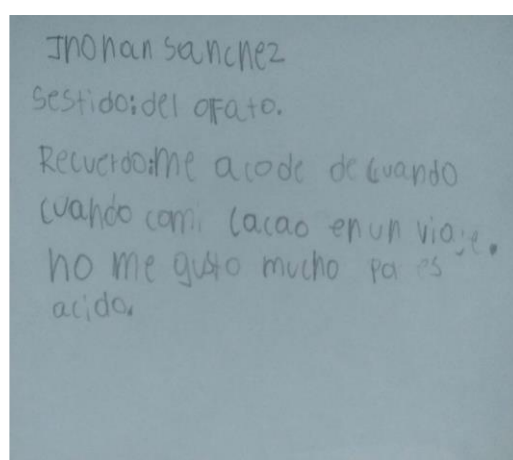 Jhonan sanchez
sestido:del ofato.
Recuerdo:me acode de cuando
cuando comi cacao en un viaje.
no me gusto mucho pa es
acido.